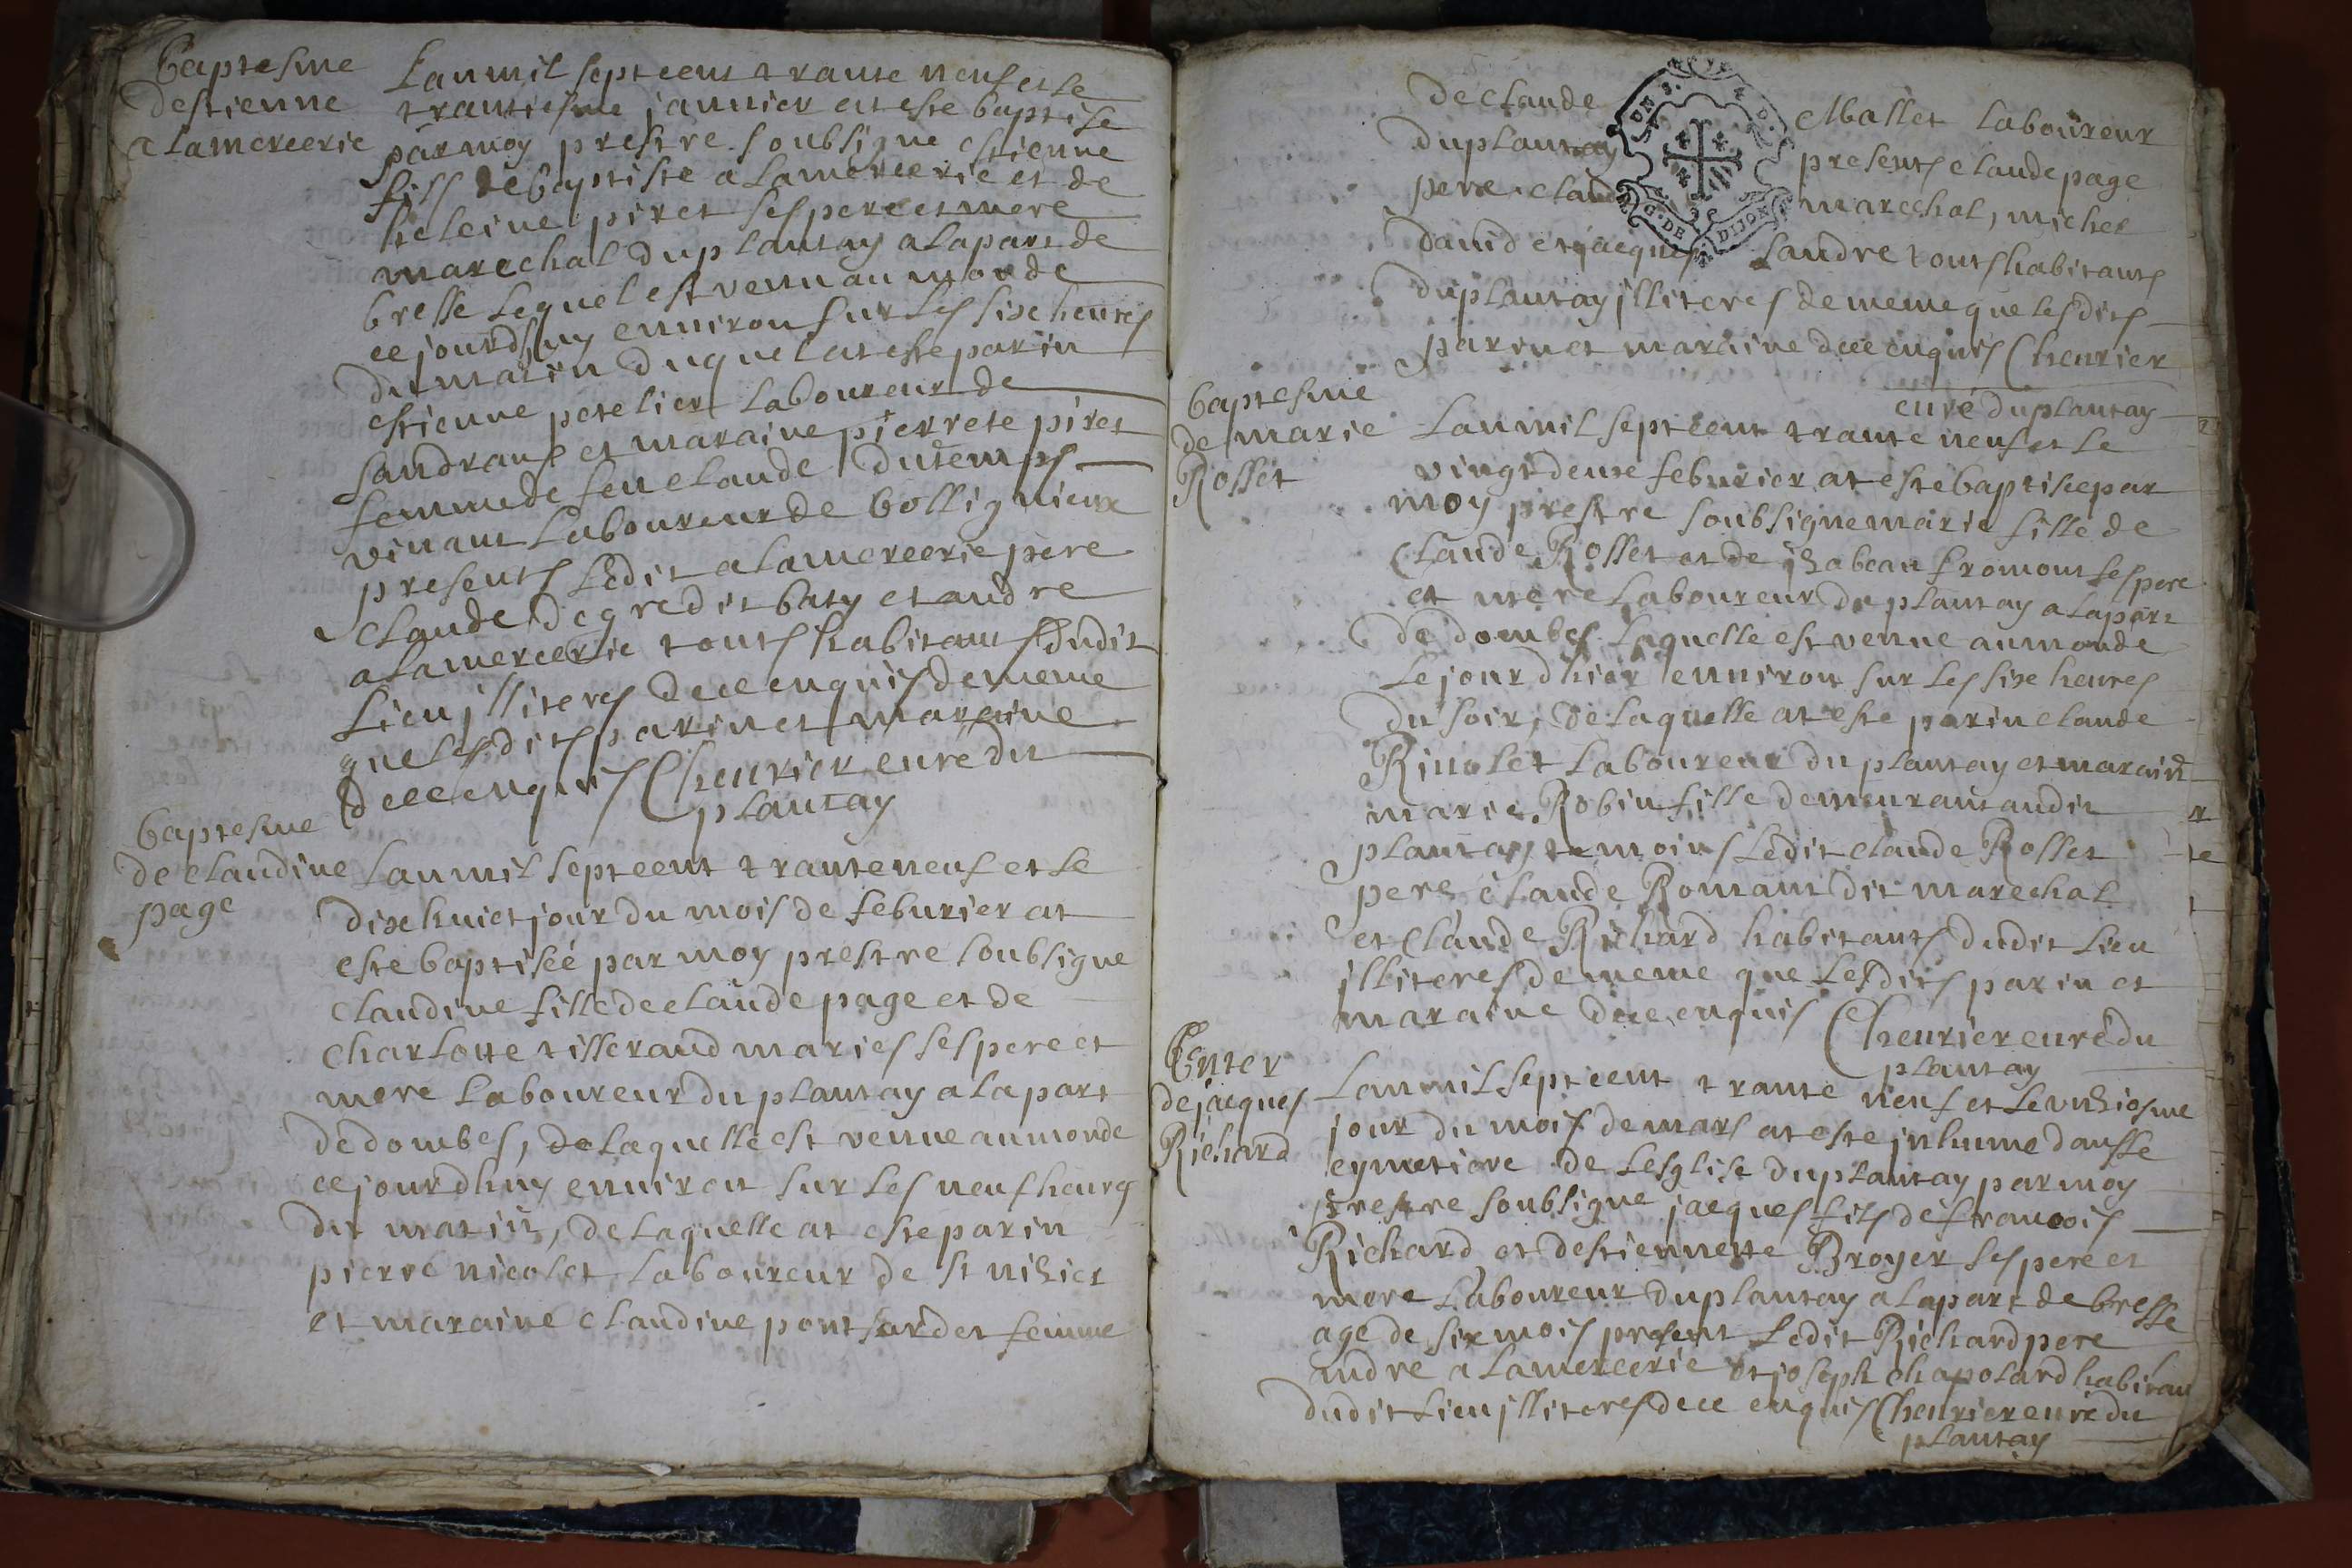 baptesme
destienne
alamercerie
Lan mil sept cent trante neuf et le
trantiesme januier at esté baptisé
par moy prestre soubsigne estienne
fils de baptiste alamercerie et de
heleine piret ses pere et mere
marechal du plantay a la part de
bresse lequel est venu au monde
ce jourdhuy enuiron sur les sixe heures
du matin duquel at este parin
estienne petelier laboureur de
sandrans et maraine pierrete piret
femme de feu claude du temps
viuant laboureur de bollignieux
presents ledit alamercerie pere
claude degredit baty et andre
alamercerie touts habitants dudit
lieu jlliteres de ce enquis de meme
que lesdits parin et maraine
de ce enquis Cheurier curé du
plantay
baptesme
de claudine
page
Lan mil sept cent trante neuf et le
dixe huict jour du mois de feburier at
este baptiseé par moy prestre soubsigne
claudine fille de claude page et de
charlotte tisserand maries ses pere et
mere laboureur du plantay a la part
de dombes, de laquelle est venue au monde
ce jourdhuy enuiron sur les neuf heures
du matin, de laquelle at este parin
pierre nicolet laboureur de st nizier
et maraine claudine pont sardet femme
de claude Mallet laboureur
du plantay presents claude page
pere claude marechal, michel
dauid et jacques Landre touts habitants
du plantay jlliteres de meme que lesdits
parin et maraine de ce enquis Cheurier
curé du plantay
baptesme
de marie
Rosset
Lan mil sept cent trante neuf et le
vingt deuxe feburier at este baptisée par
moy prestre soubsigne marie fille de
Claude Rosset et de jzabeau fromont ses pere
et mere laboureur du plantay a la part
de dombes laquelle est venue au monde
le jour dhier enuiron sur les sixe heures
du soir, de laquelle at este parin claude
Riuolet laboureur du plantay et marain
marie Robin fille demeurant audit
plantay temoins ledit claude Rosset
pere claude Romans dit marechal
et Claude Richard habitants dudit lieu
jlliteres de meme que lesdits parin et
maraine de ce enquis Cheurier curé du
plantay
Enter
de jacques
Richard
Lan mil sept cent trante neuf et le vnziesme
jour du mois de mars at este jnhume dans le
cymetiere de lesglise du plantay par moy
prestre soubsigne jacques fils de francois
Richard et destiennette Broyer ses pere et
mere laboureur du plantay a la part de bresse
age de six mois present ledit Richard pere
andre alamercerie et joseph chapolard habitan
dudit lieu jlliteres de ce enquis Cheurier curé du
plantay
G. DE DIJON